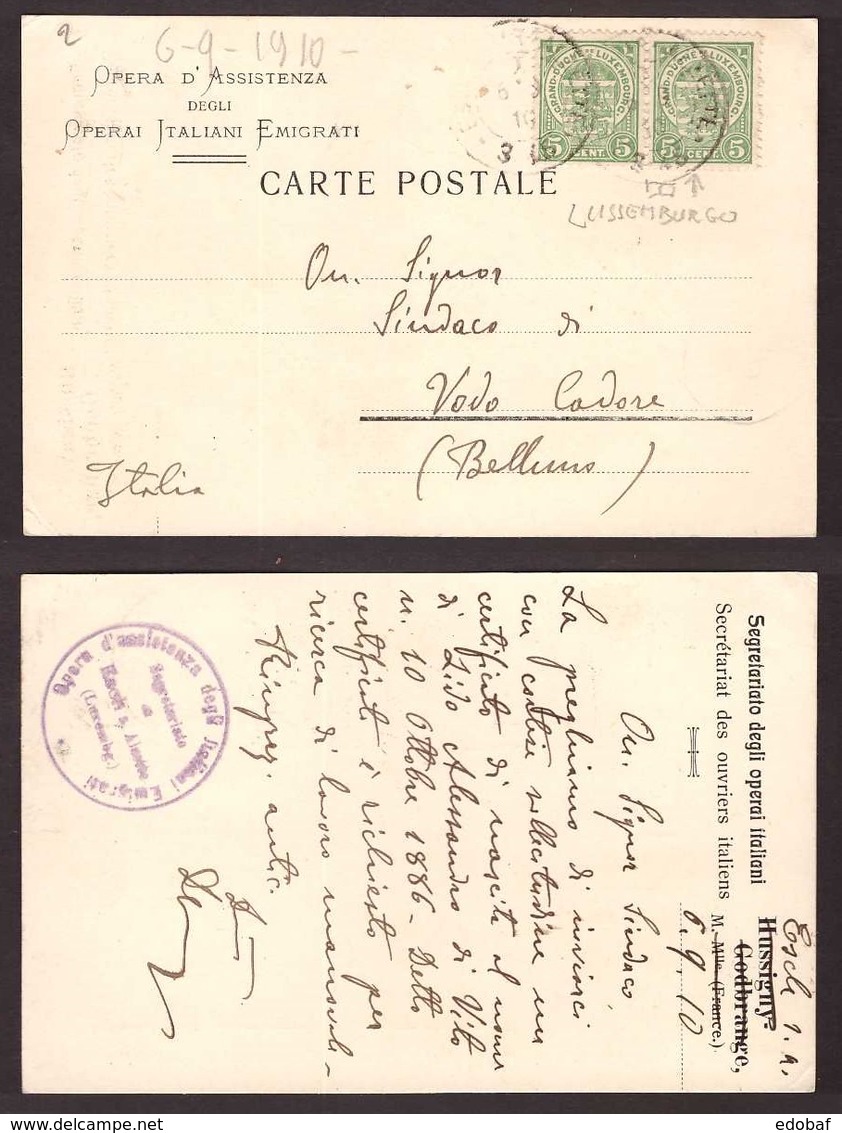 2
6-9-1910-
OPERA D'ASSISTENZA
DEGLI
OPERAI ITALIANI EMIGRATI
CARTE POSTALE
GRAND-DUCHÉ DE LUXEMBOURG.
5 CENT. 5
GRAND-DUCHÉ DE LUXEMBOURG.
5 CENT. 5
LUSSEMBURGO
On. Signor
Sindaco di
Vodo Cadore
(Belluno)
Italia
Segretariato degli operai italiani
Secrétariat des ouvriers italiens
Esch s. A.
Hussigny-
Godbrange,
M.-Mlle (France.)
6.9.10
On. Signor Sindaco
La preghiamo di inviarci
con cortese sollecitudine un
certificato di nascita al nome
di Lido Alessandro di Vito
n. 10 Ottobre 1886 - Detto
certificato è richiesto per
ricerca di lavoro manovale-
Ringrz. antic.
Opera d'assistenza degli Italiani Emigrati
Segretariato
di
Esch s. Alzette
(Luxembg.)
edobaf